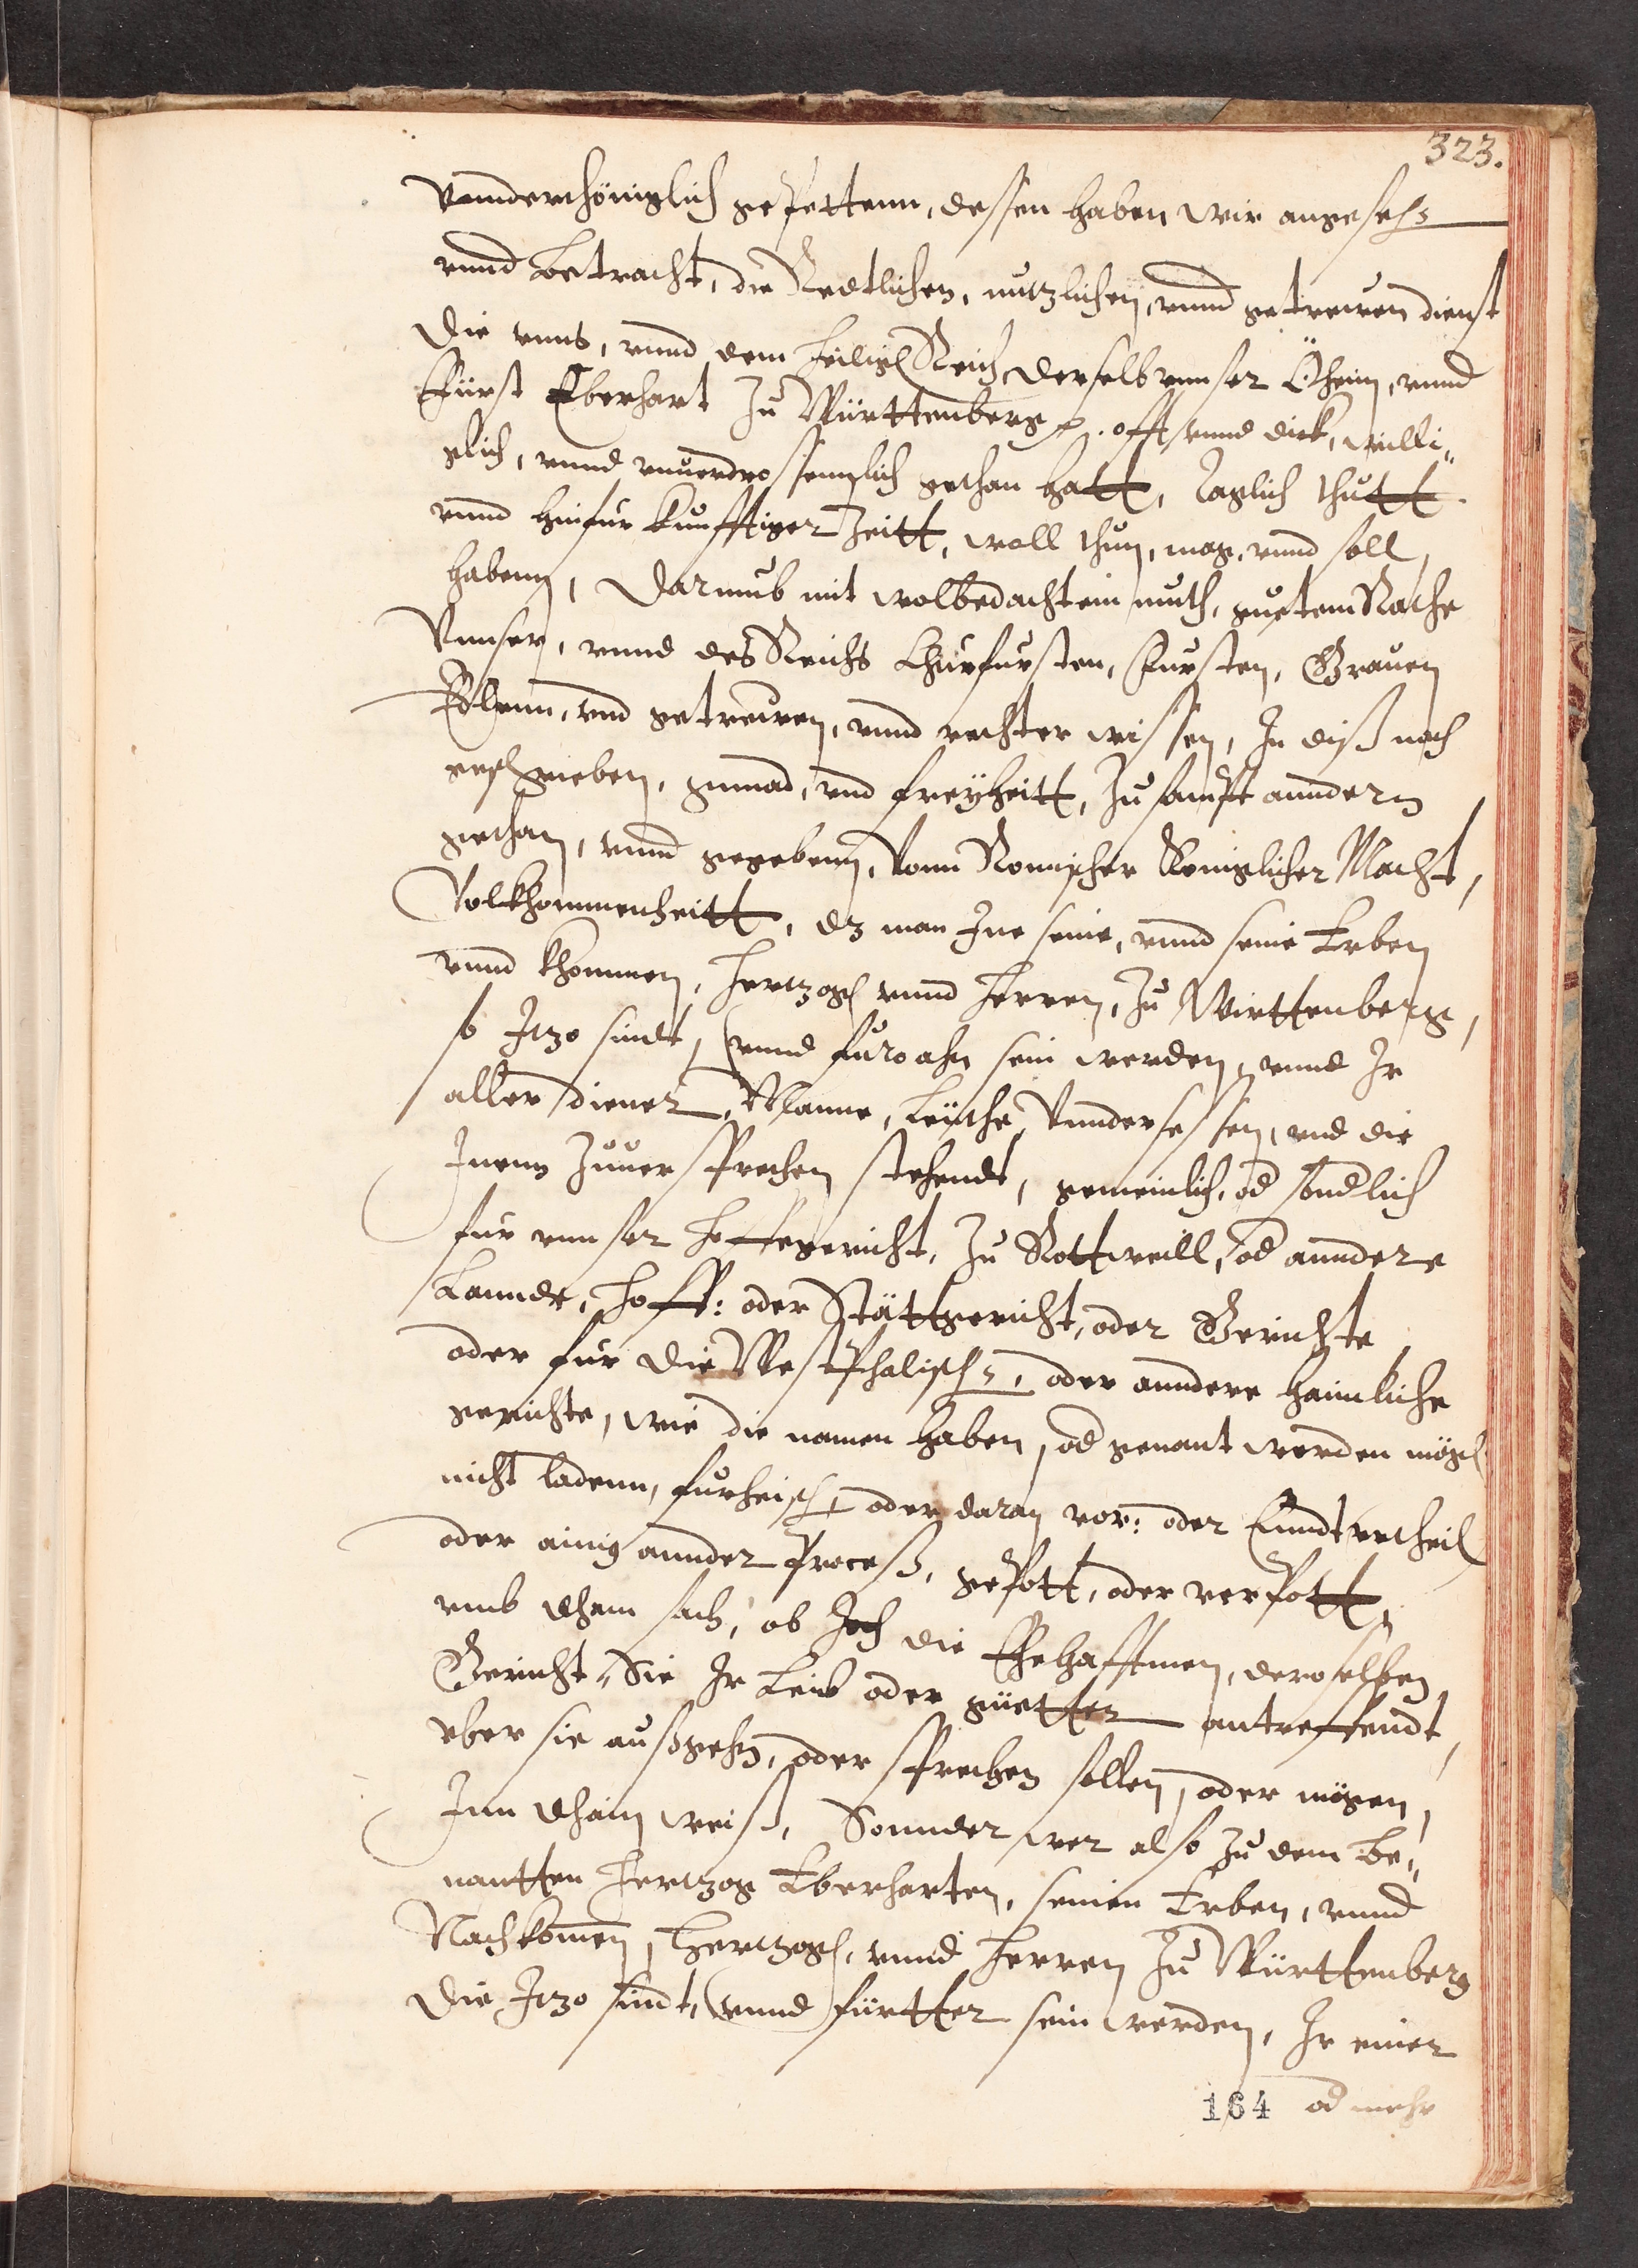 323.
Vnnderthöniglich gepettenn, dessen haben wir angesehen
vnnd Betracht, die Redtlichen, nutzlichen, vnnd getrewen dienst
die vnns, vnnd dem heiligen Reich derselb vnnser Öheim, vnnd
Fürst Eberhart Zu Württenberg offt vnnd dick, willi„
glich, vnnd vnuerdrossennlich gethan hatt, Taglich thutt
vnnd hinfur kunfftiger Zeitt, woll thun, mag, vnnd soll
habenn, Darumb mit wolbedachtem muth, guetem Rathe
Vnnser, vnnd des Reichs Churfursten, Fursten, Grauen
Edlenn, vnd getrewen, vnnd rechter wissen, In diß nach
geschrieben, gnnad, vnd freyheitt, Zu sampt anndern
gethan, vnnd gegebenn, Vonn Romischer Königlicher Macht,
Volkhommenheitt, dz man Ine seine, vnnd seine Erben
vnnd khommen, Hertzogen vnnd Herren, Zu Wirttenberg,
so Itzo sindt, vnnd furo ahn sein werden, vnnd Ir
aller diener, Manne, Leüthe Vnndersessen, vnd die
Inenn Zuuersprechen stehendt, gemeinlich, od sondlich
fur vnnser Hoffgericht, Zu Rottweill, od anndere
Lanndt, Hoff: oder Stättgericht, oder Gerichte
oder fur die Westphalischen, oder anndere haimliche
gerichte, wie die namen haben, od genant werden mögen
nicht ladenn, furheischen oder daran vor: oder Enndtvrtheil
oder ainig annder Proceß, gepott, oder verpott,
vmb kham sach, ob Joch die Ehehafftinen, deroselben
Gericht, Sie Ir Leib oder güetter antreffendt,
vber sie außgehen, oder sprechen sollen, oder mögen,
Inn khain weiß, Sonnder wer also Zu dem Be„
nantten Hertzog Eberharten, seinen Erben, vnnd
Nachkommen, Hertzogen, vnnd Herren Zu Württenberg
die Itzo sindt, vnnd fürtter sein werden, Ir einer
164 od mehr